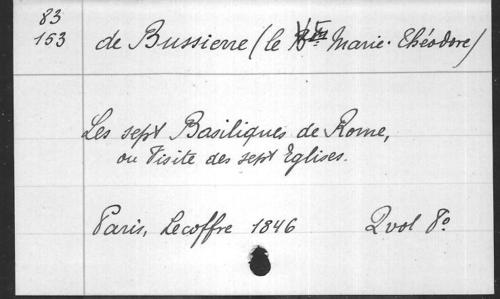 83
153
de Bussierre (le Vte Marie-Théodore)
Les sept Basiliques de Rome,
ou Visite des sept Eglises.
Paris, Lecoffre 1846 2 vol 8º